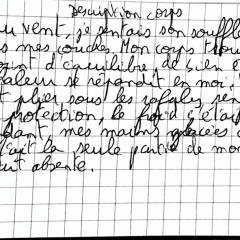 Description corps
au vent, je sentais son souffle
s mes couches. Mon corps trou
oint d'équilibre, de bien ê
aleur se répandit en moi.
t plier sous les rafales, ren
protection, le froid s'étai
dant, mes mains glacées
tait la seule partie de mo
ut absente.